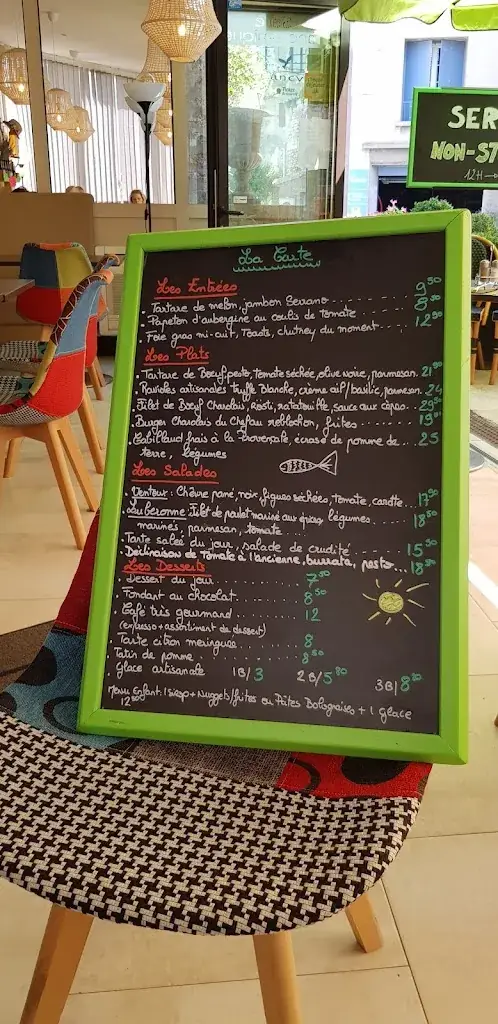 SER
NON-ST
12H
La Carte
Les Entrées
. Tartare de melon, jambon Serrano 9 50
. Papeton d'aubergine au coulis de tomate
. Foie gras mi-cuit, Toasts, chutney du moment 12 50
Les Plats
. Tartare de Boeuf pesto, tomate séchée, olive noire, parmesan. 21
. Ravioles artisanales truffe blanche, crème ail/basilic, parmesan 24
. Filet de Boeuf Charolais, Rosti, ratatouille, sauce aux cèpes
. Burger Charolais du Chef au reblochon, frites 19
. Cabillaud frais à la Provençale, écrasé de pomme de 25
terre, légumes
Les Salades
. Ventoux : Chèvre pané, noix, figues séchées, tomate, carotte 17 50
. Luberonne : Filet de poulet mariné aux épices, légumes 18 50
marinés, parmesan, tomate
. Tarte salée du jour, salade de crudité 15 50
. Déclinaison de Tomate à l'ancienne, burrata, pesto 18
Les Desserts
. Dessert du jour 7 50
. Fondant au chocolat 8 50
. Café très gourmand 12
(expresso + assortiment de dessert)
. Tarte citron meringuée 8
. Tatin de pomme 8 50
. Glace artisanale 1B/3 2B/5 80 3B/8
Menu Enfant : 1 Sirop + Nuggets/frites ou Pâtes Bolognaises + 1 glace
12 50